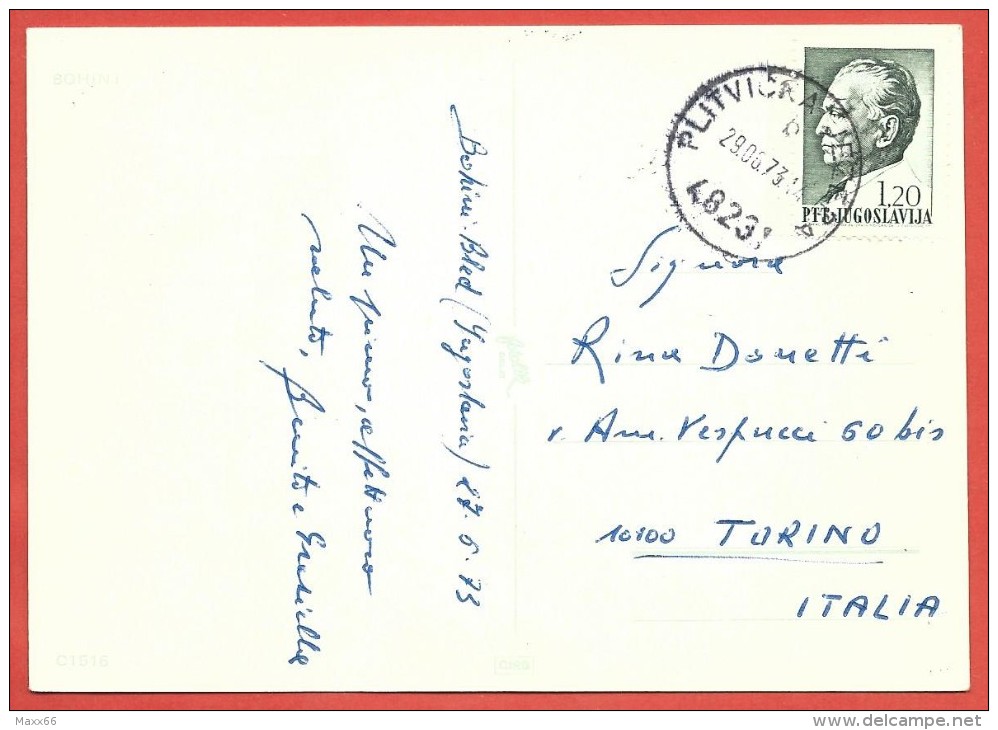 BOHINJ
Bohinj-Bled (Yugoslavia) 27.6.73
Un primo, affettuoso
saluto,
Benito e Graziella
PLITVIČKA JEZERA
b
29.06.73
48231
1,20
PTT-JUGOSLAVIJA
Signora
Rina Donetti
v. Am. Vespucci 60 bis
10100 TORINO
ITALIA
C1516
Maxx66
www.delcampe.net